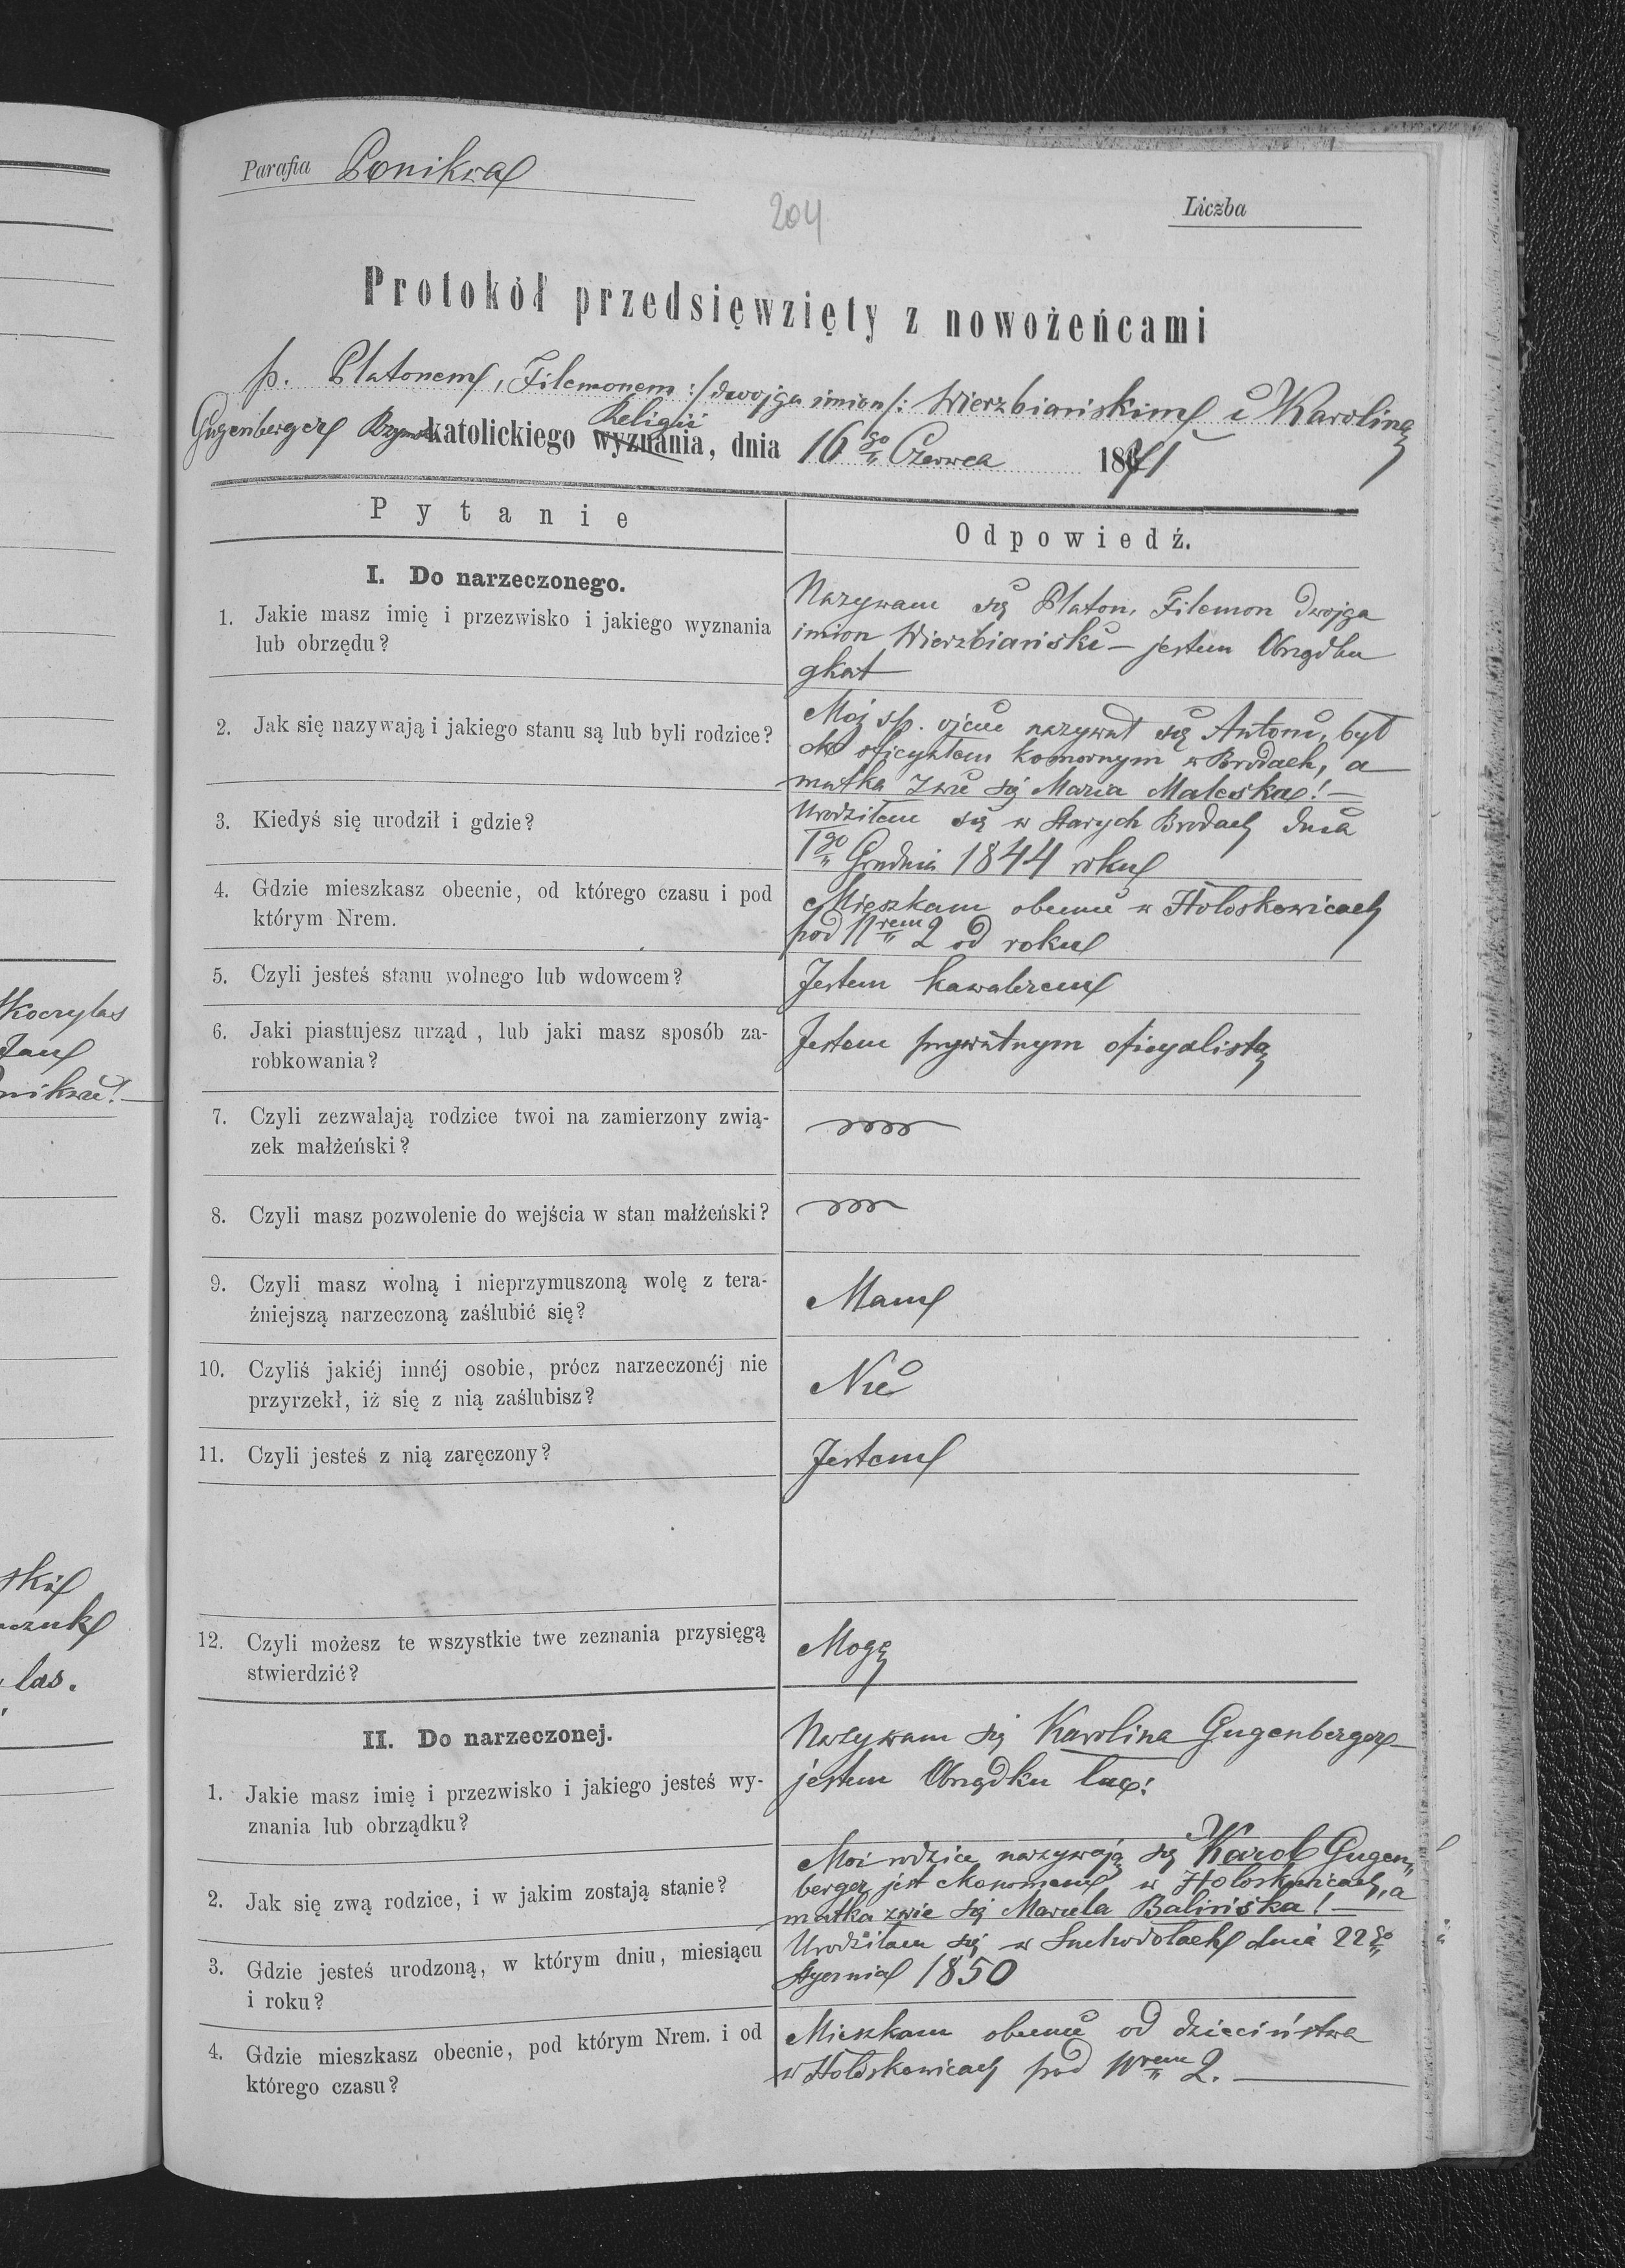 Parafia Ponikwa
204
Liczba
Protokół przedsięwzięty z nowożeńcami
p. Platonem, Filemonem :/dwojga imion/: Wierzbiańskim i Karoliną
Gugenberger Rzymsko katolickiego wyznania Religii, dnia 16go Czerwca 1871
Pytanie
Odpowiedź.
I. Do narzeczonego.
1. Jakie masz imię i przezwisko i jakiego wyznania
lub obrzędu?
Nazywam się Platon, Filemon dwojga
imion Wierzbiański – jestem Obrządku
gkat
2. Jak się nazywają i jakiego stanu są lub byli rodzice?
Moj śp. ojciec nazywał się Antoni, był
oficyałem komornym w Brodach, a
matka zwie się Maria Maleska! –
3. Kiedyś się urodził i gdzie?
Urodziłem się w Starych Brodach dnia
1go Grudnia 1844 roku
4. Gdzie mieszkasz obecnie, od którego czasu i pod
którym Nrem.
Mieszkam obecnie w Hołoskowicach
pod Nrem 2 od roku
5. Czyli jesteś stanu wolnego lub wdowcem?
Jestem kawalerem
6. Jaki piastujesz urząd, lub jaki masz sposób za-
robkowania?
Jestem prywatnym oficyalistą
7. Czyli zezwalają rodzice twoi na zamierzony zwią-
zek małżeński?
8. Czyli masz pozwolenie do wejścia w stan małżeński?
9. Czyli masz wolną i nieprzymuszoną wolę z tera-
źniejszą narzeczoną zaślubić się?
Mam
10. Czyliś jakiéj innéj osobie, prócz narzeczonéj nie
przyrzekł, iż się z nią zaślubisz?
Nie
11. Czyli jesteś z nią zaręczony?
Jestem
12. Czyli możesz te wszystkie twe zeznania przysięgą
stwierdzić?
Mogę
II. Do narzeczonej.
1. Jakie masz imię i przezwisko i jakiego jesteś wy-
znania lub obrządku?
Nazywam się Karolina Gugenberger
jestem Obrządku łac:
2. Jak się zwą rodzice, i w jakim zostają stanie?
Moi rodzice nazywają się Karol Gugen„
berger, jest ekonomem w Hołoskowicach, a
matka zwie się Marcela Balińska! –
3. Gdzie jesteś urodzoną, w którym dniu, miesiącu
i roku?
Urodziłam się w Suchodołach dnia 22go
stycznia 1850
4. Gdzie mieszkasz obecnie, pod którym Nrem. i od
którego czasu?
Mieszkam obecnie od dzieciństwa
w Hołoskowicach pod Nrem 2.